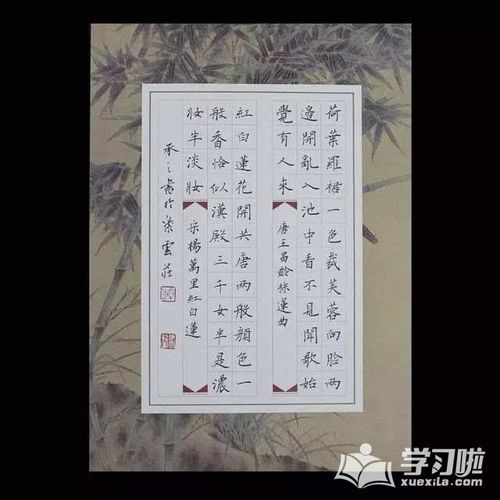 荷葉羅裙一色裁芙蓉向臉兩
邊開亂入池中看不見聞歌始
覺有人來
唐王昌齡採蓮曲
紅白蓮花開共唐兩般顏色一
般香恰似漢殿三千女半是濃
妝半淡妝
宋楊萬里紅白蓮
承之書於雲莊
学习啦
xuexila.com